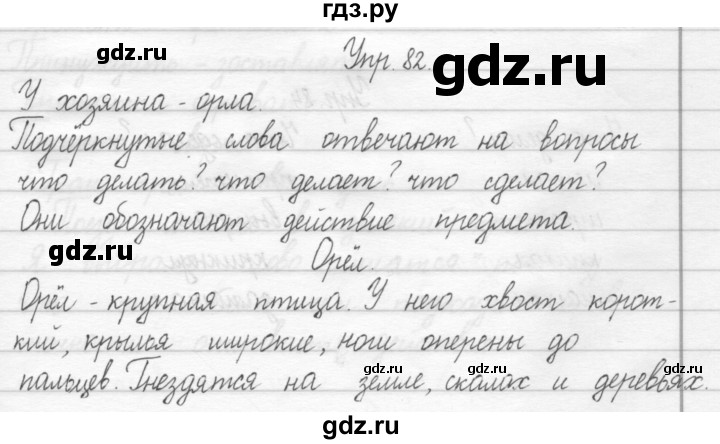 гдз.ру
gdz.ru
Упр. 82.
gdz.ru
У хозяина - орла.
Подчёркнутые слова отвечают на вопросы
что делать? что делает? что сделает?
Они обозначают действие предмета.
gdz.ru
Орёл.
Орёл - крупная птица. У него хвост корот-
кий, крылья широкие, ноги оперены до
gdz.ru
gdz.ru
пальцев. Гнездятся на земле, скалах и деревьях.
gdz.ru